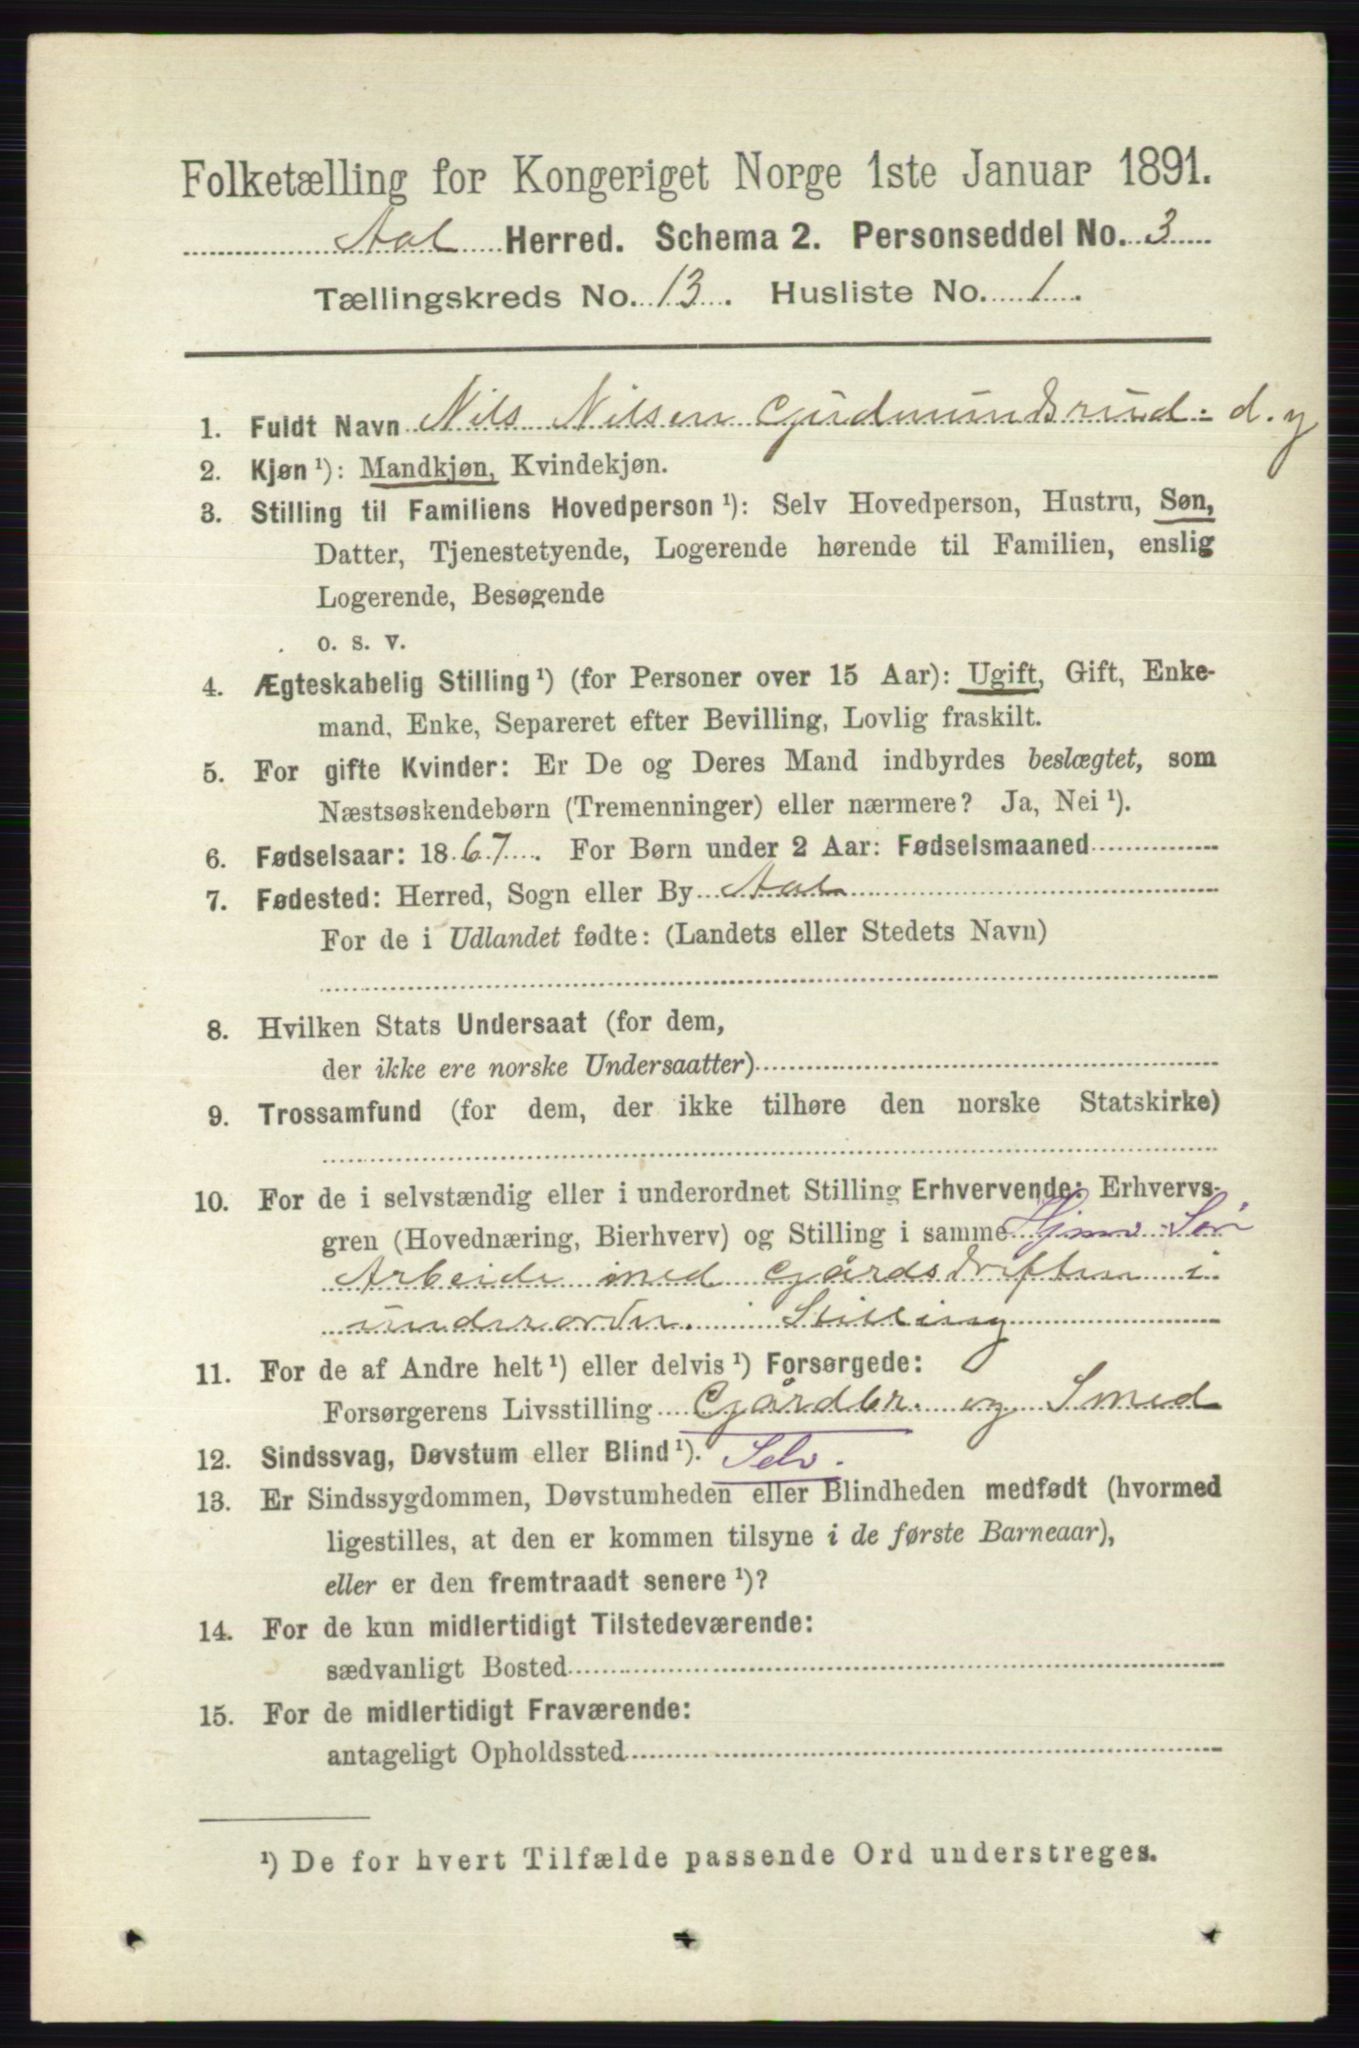 Folketælling for Kongeriget Norge 1ste Januar 1891.
Aal Herred. Schema 2. Personseddel No. 3
Tællingskreds No. 13. Husliste No. 1.
1. Fuldt Navn Nils Nilsen Gudmundsrud. d. y
2. Kjøn ¹): Mandkjøn, Kvindekjøn.
3. Stilling til Familiens Hovedperson ¹): Selv Hovedperson, Hustru, Søn,
Datter, Tjenestetyende, Logerende hørende til Familien, enslig
Logerende, Besøgende
o. s. v.
4. Ægteskabelig Stilling ¹) (for Personer over 15 Aar): Ugift, Gift, Enke-
mand, Enke, Separeret efter Bevilling, Lovlig fraskilt.
5. For gifte Kvinder: Er De og Deres Mand indbyrdes beslægtet, som
Næstsøskendebørn (Tremenninger) eller nærmere? Ja, Nei ¹).
6. Fødselsaar: 1867. For Børn under 2 Aar: Fødselsmaaned
7. Fødested: Herred, Sogn eller By Aal
For de i Udlandet fødte: (Landets eller Stedets Navn)
8. Hvilken Stats Undersaat (for dem,
der ikke ere norske Undersaatter)
9. Trossamfund (for dem, der ikke tilhøre den norske Statskirke)
10. For de i selvstændig eller i underordnet Stilling Erhvervende: Erhvervs-
gren (Hovednæring, Bierhverv) og Stilling i samme
Arbeide med Gårdsdriften i
underordn. Stilling
11. For de af Andre helt ¹) eller delvis ¹) Forsørgede:
Forsørgerens Livsstilling Gårdbr. og Smed
12. Sindssvag, Døvstum eller Blind ¹). Selv.
13. Er Sindssygdommen, Døvstumheden eller Blindheden medfødt (hvormed
ligestilles, at den er kommen tilsyne i de første Barneaar),
eller er den fremtraadt senere ¹)?
14. For de kun midlertidigt Tilstedeværende:
sædvanligt Bosted
15. For de midlertidigt Fraværende:
antageligt Opholdssted
¹) De for hvert Tilfælde passende Ord understreges.